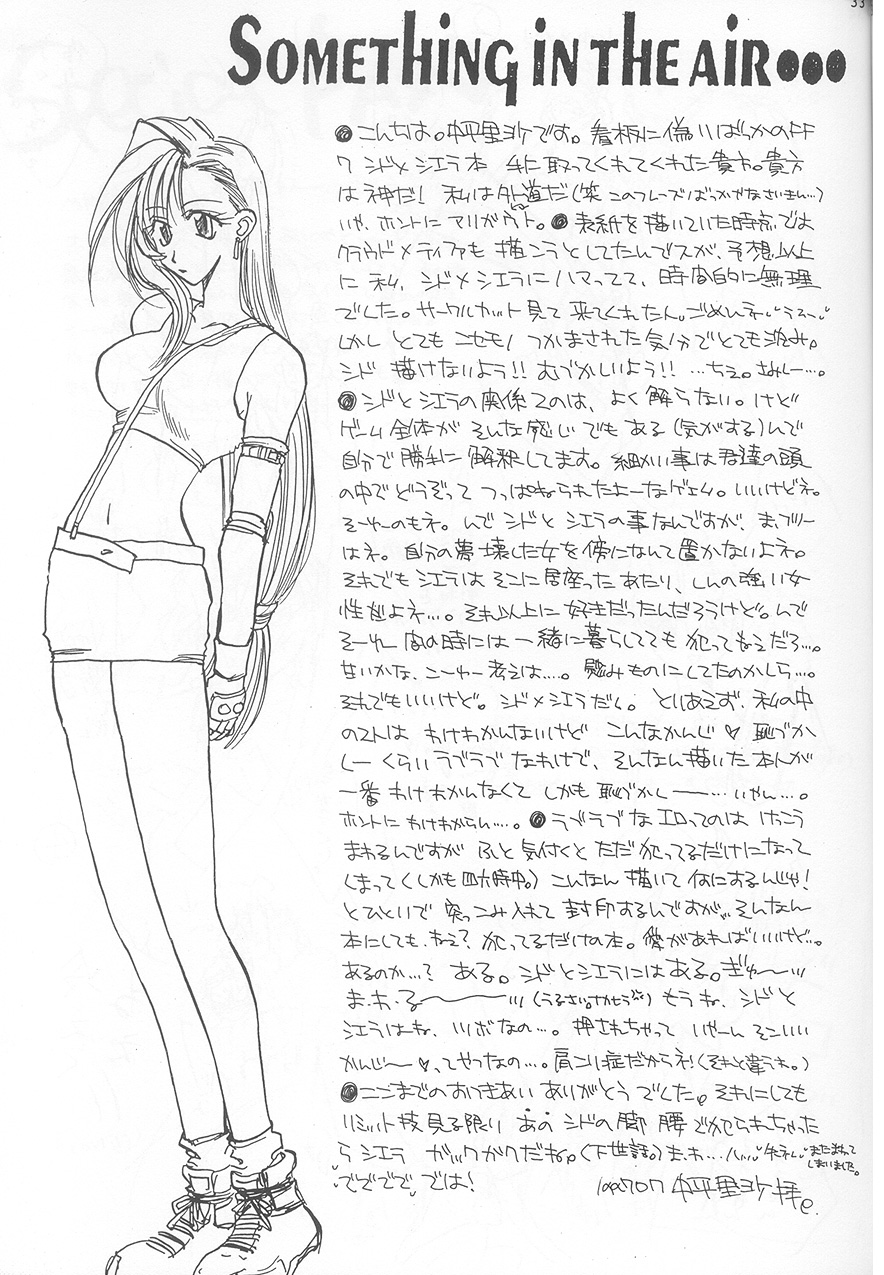 33
SOMETHING IN THE AIR●●●
●こんちは。平里沙です。看板に偽りばっかのFF
7 シド×シエラ本 手に取ってくれてくれた貴方。貴方
は神だ! 私は外道だ(笑 このフレーズばっかかなさいきん…)
いや、ホントにアリガウト。●表紙を描いていた時点では
クラウド×ティファも 描こうとしてたんでスが、予想以上
に 私、シド×シエラにハマってて、時間的に無理
でした。サークルカット見て 来てくれたん。ごめんネ
しかし とても ニセモノ つかまされた気分でとても沈み。
シド 描けないよう!! むづかしいよう!! …ちえ。さみしー…。
●シドとシエラの関係ての は、よく解らない。けど
ゲーム全体が そんな感じ でもある(気がする)んで
自分で勝手に 解釈してます。細かい事は君達の頭
の中でどうぞって つっぱねられたよーなゲエム。いいけどネ。
そーゆのもネ。んで シドと シエラの事なんですが、まっフツー
はネ。自分の夢壊した女を傍になんて置かないよネ。
それでも シエラは そこに居座った あたり、しんの強い女
性だよネ…。それ以上に 好きだったんだろうけど。んで
そーゆー 間の時には 一緒に暮らしてても 犯ってねえだろ…。
甘いかな、こーゆー考えは…。 慰みものにしてたのかしら…。
それでもいいけど。シド×シエラだし。とりあえず、私の中
の2人は わけわかんないけど こんなかんじ♥ 恥づか
しー くらいラブラブなわけで、そんなん描いた本人が
一番 わけわかんなくて しかも 恥づかしー――… いやん…。
ホントに わけわからん…。●ラブラブな エロってのは けっこう
まわるんですが ふと気付くと ただ犯ってるだけになって
しまって(しかも四六時中。)こんなん 描いて なにするんじゃ!
とひといで 突っこみ入れて 封印するんですが、そんなん
本にしても、ねえ? 犯ってるだけの本。愛があればいいけど…。
あるのか…? ある。シドとシエラにはある。ぎゅ〜
ま・わ・る〜――(うるさい)もうね、シドと
シエラはね、ツボなの…。押されちゃって いやーん そこいい
かんじ〜♥、ってやつなの…。肩こり症だからネ!(それと違うわ。)
●ここまでのおつきあい ありがとう でした。それにしても
リミット技見る限り あの シドの脚 腰でやられちゃった
ら シエラ ガックガクだね。(下世話。)ま・わ… 失礼 またまわって
しまいました。
でででで では!
199707 平里沙 拝